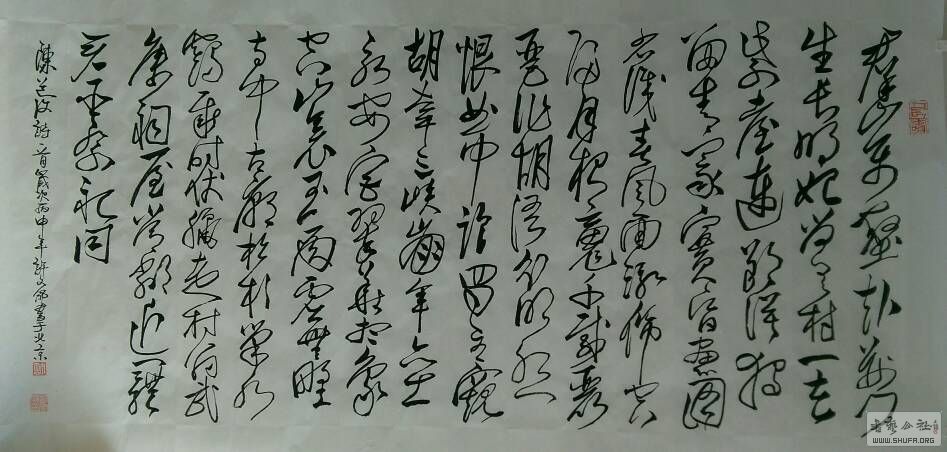 群山萬壑赴荆门
生长明妃尚有村一去
紫臺連朔漠独
留青冢向黄昏画图
省識春风面環佩空
归月夜魂千载琵
琶作胡语分明怨
恨曲中论蜀主窥
吴幸三峡崩年亦在
永安宫翠華想象
空山里玉殿虚無野
寺中古廟杉松巢水
鶴岁时伏臘走村翁武
侯祠屋常鄰近一體
君臣祭祀同
诗二首歲次丙申年許書于北京
WWW.SHUFA.ORG